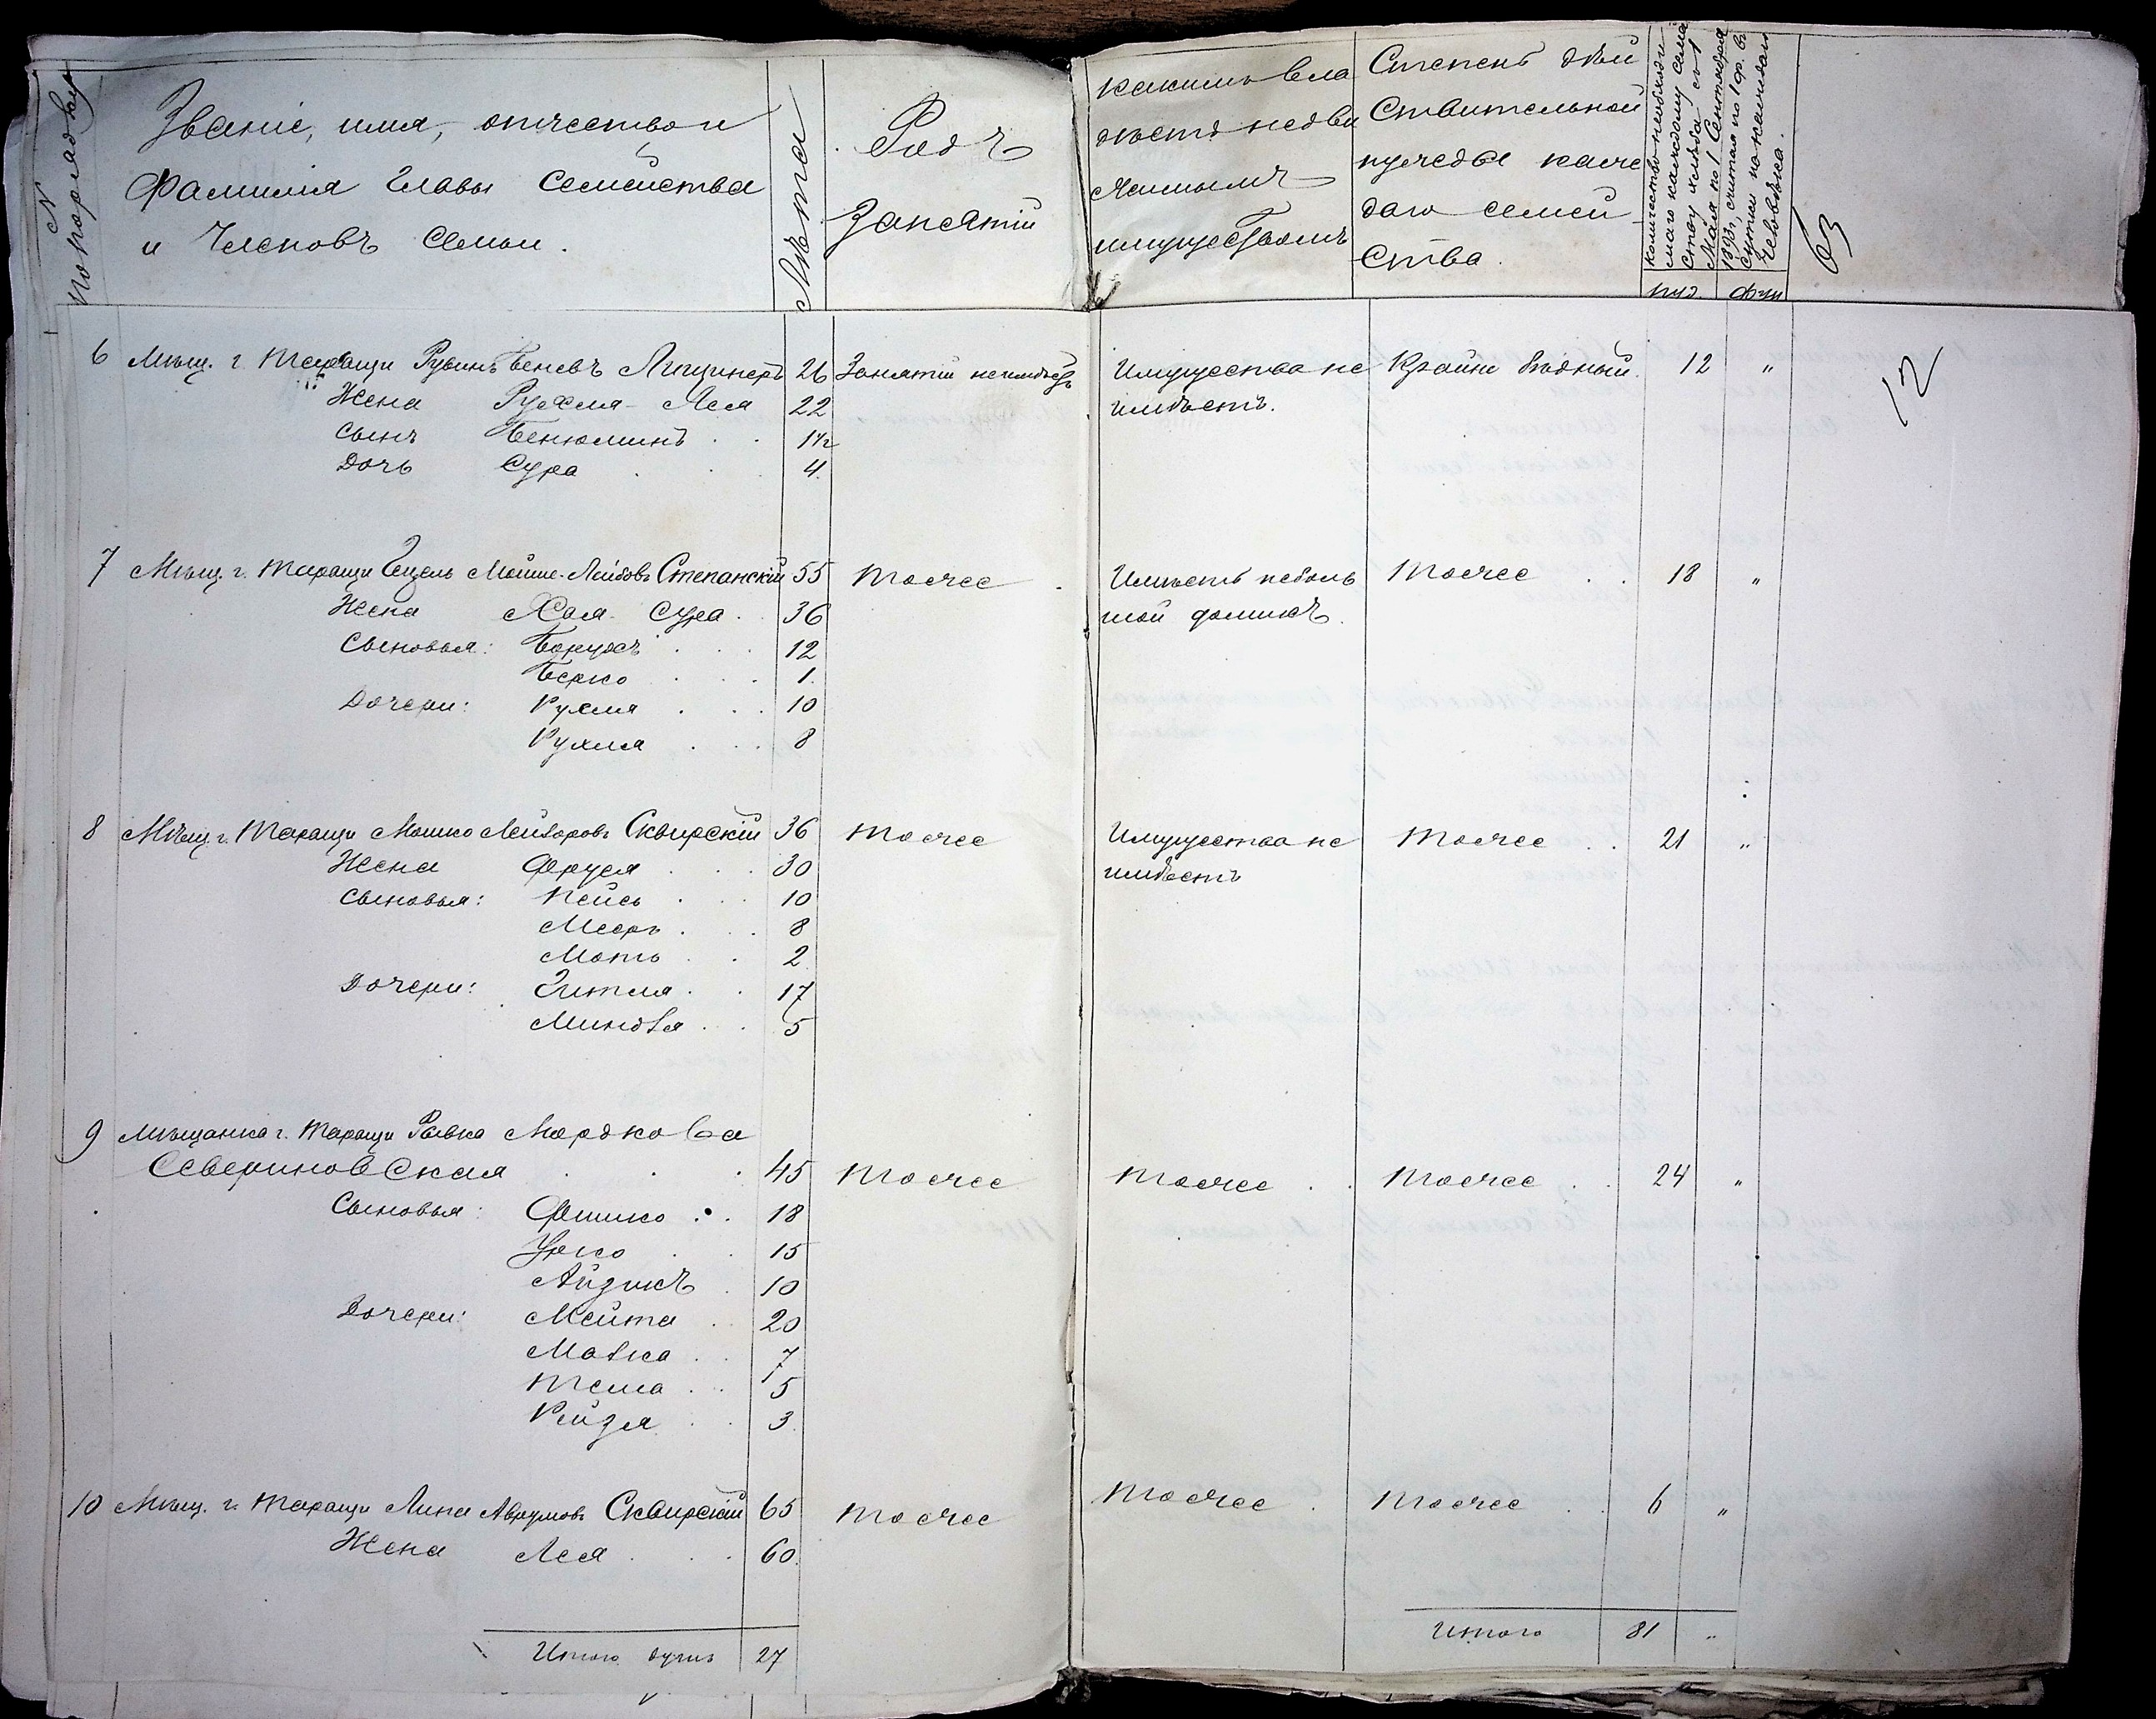 № по порядку
Званіе, имя, отчество и
Фамилія Главы Семейства
и Членовъ Семьи.
Лѣта
Родъ
Занятій
какимъ вла
дѣетъ недви
жимымъ
имуществомъ
Степень дѣй
ствительной
нужды каж
даго семей
ства.
количество необходи-
маго каждому семей
ству хлѣба съ 1
Мая по 1 Сентября
1893, считая по 1 ф. въ
сутки на каждаго
человѣка.
пуд. фун
63
12
6 Мѣщ. г. Таращи Рувинъ Беневъ Лищинеръ 26 Занятій неимѣетъ Имущества не Крайне бѣдный. 12 "
Жена Рухля-Лея 22 имѣетъ.
Сынъ Бенюминъ 1½
Дочь Сура 4.
7 Мѣщ. г. Таращи Гецель Мошне-Лейбовъ Степанскій 55 Тоже Имѣетъ неболь Тоже 18 "
Жена Хая-Сура 36 шой домикъ.
Сыновья: Борухъ 12
Берко 1.
Дочери: Рухля 10
Рухля 8
8 Мѣщ. г. Таращи Мошко Лейзоровъ Сквирскій 36 Тоже Имущества не Тоже 21 "
Жена Фруся 30 имѣетъ
Сыновья: Пейсь 10
Мееръ 8
Моть 2
Дочери: Зитля 17
Миндля 5
9 Мѣщанка г. Таращи Рывка Мордкова
Севериновская 45 Тоже Тоже Тоже 24 "
Сыновья: Фишко 18
Урко 15
Айзикъ 10
Дочери: Мейта 20
Малка 7
Тема 5
Рейзя 3
10 Мѣщ. г. Таращи Липа Аврумовъ Сквирскій 65 Тоже Тоже Тоже 6 "
Жена Лея 60.
Итого душъ 27
Итого 81 "